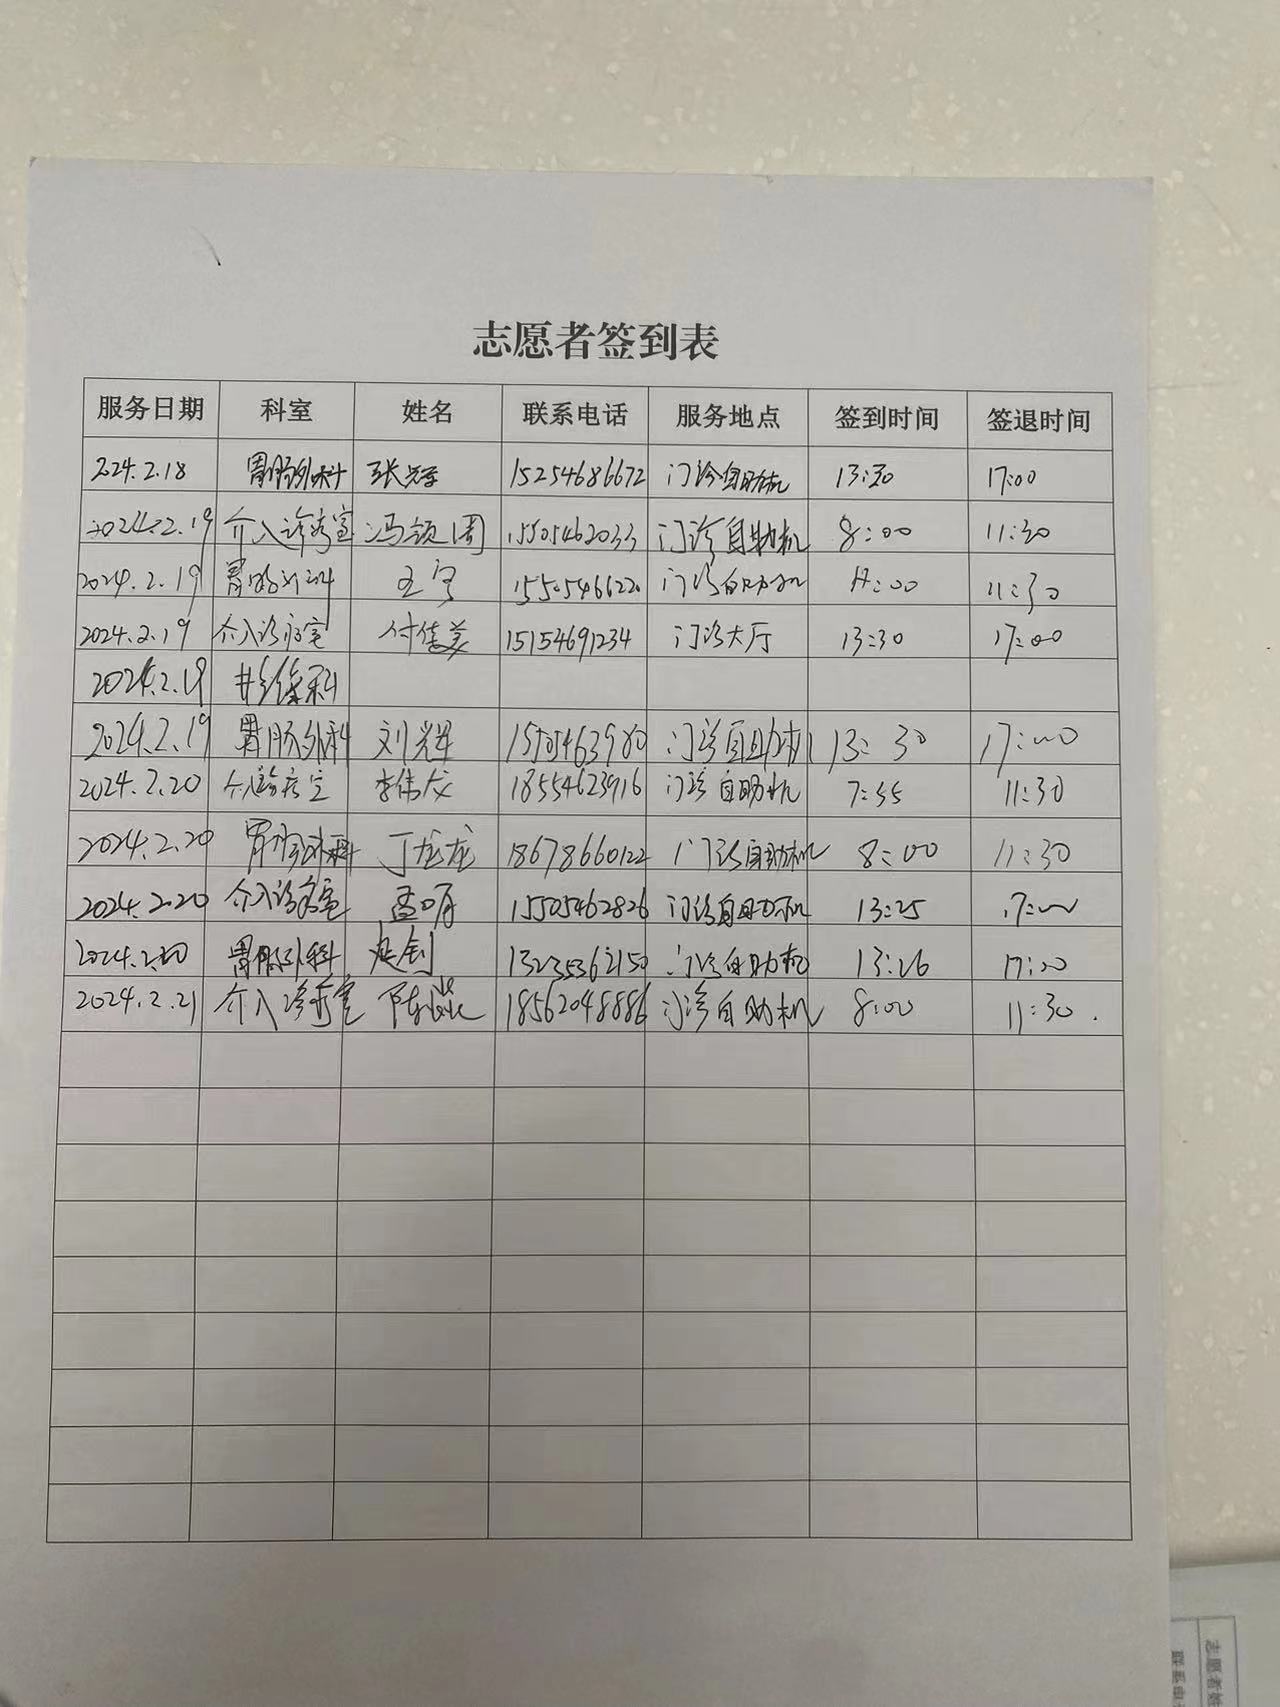 志愿者签到表
服务日期 科室 姓名 联系电话 服务地点 签到时间 签退时间
2024.2.18 胃肠外科 张 15254686672 门诊自助机 13:30 17:00
2024.2.19 介入诊疗室 冯领周 15505462033 门诊自助机 8:00 11:30
2024.2.19 胃肠外科 王宁 15505466220 门诊自助机 :00 11:30
2024.2.19 介入诊疗室 付佳美 15154691234 门诊大厅 13:30 17:00
2024.2.19
2024.2.19 胃肠外科 刘辉 15505463980 门诊自助机 13:30 17:00
2024.2.20 介入诊疗室 李伟 18554623916 门诊自助机 7:55 11:30
2024.2.20 胃肠外科 丁龙龙 18678660122 门诊自助机 8:00 11:30
2024.2.20 介入诊疗室 孟明 15505462826 门诊自助机 13:25 17:00
2024.2.20 胃肠外科 13235362150 门诊自助机 13:26 17:00
2024.2.21 介入诊疗室 陈 18562048886 门诊自助机 8:00 11:30.
志愿者签
联系电